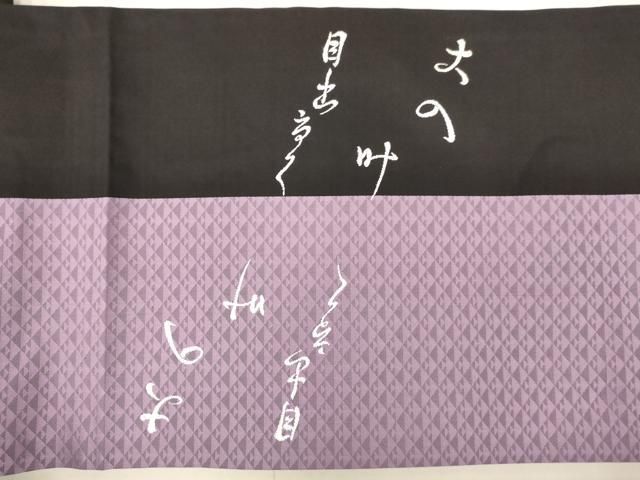 大の
叶
目出度く
大の
叶
目出度く